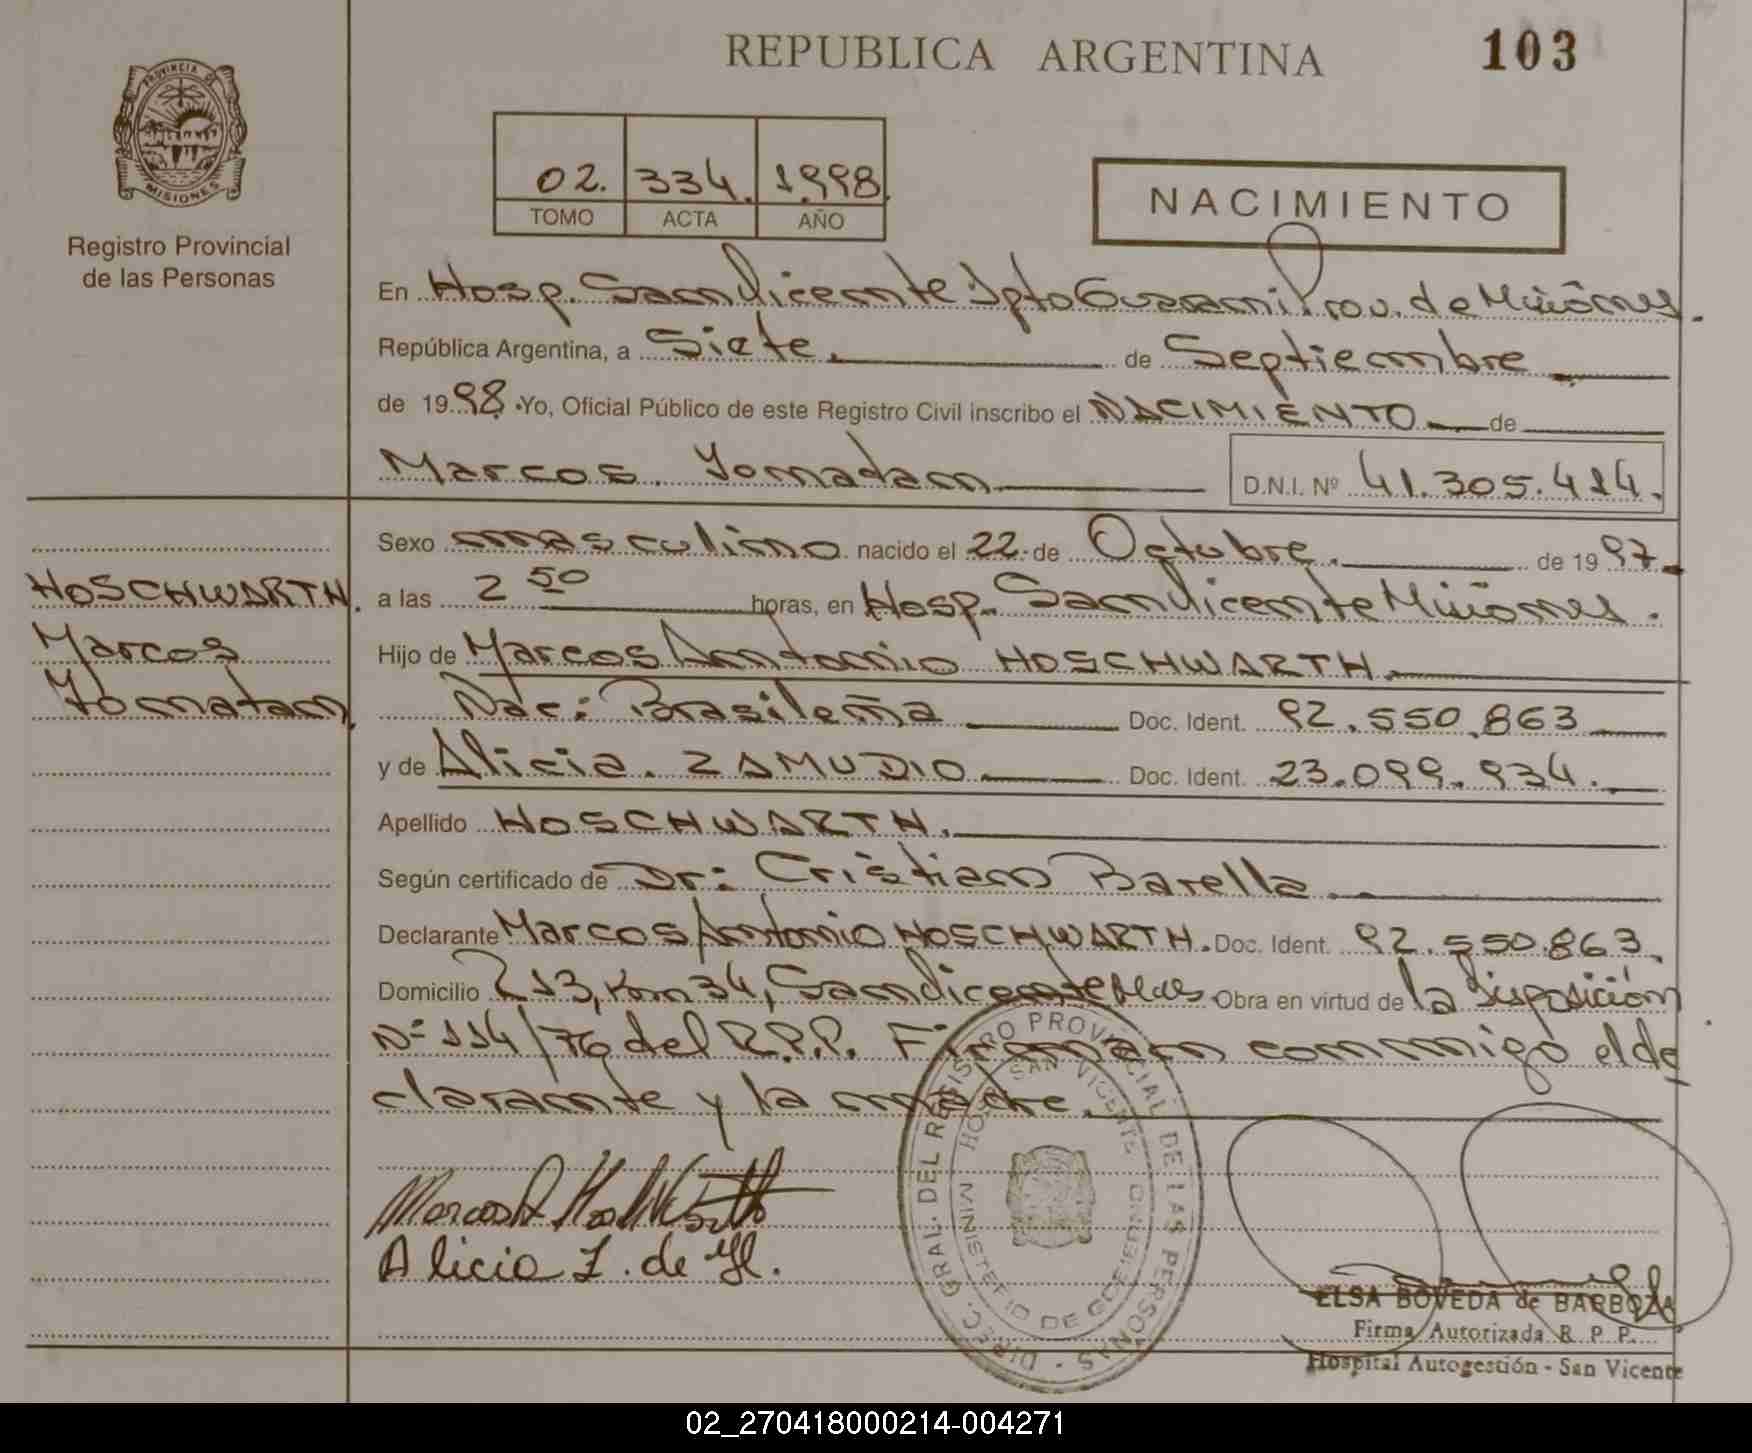 REPUBLICA ARGENTINA
103
PROVINCIA D
MISIONES
Registro Provincial
de las Personas
02. 334. 1998
TOMO ACTA AÑO
NACIMIENTO
En Hosp. San Vicente Dpto Guarani Prov. de Misiones.
República Argentina, a Siete. de Septiembre
de 1998. Yo, Oficial Público de este Registro Civil inscribo el NACIMIENTO de
Marcos Yonatam D.N.I. Nº 41.305.414.
HOSCHWARTH.
Marcos
Yonatam
Sexo masculino nacido el 22 de Octubre. de 1997
a las 2 50 horas, en Hosp. San Vicente Misiones.
Hijo de Marcos Antonio HOSCHWARTH.
Nac: Brasileña Doc. Ident. 92.550.863
y de Alicia. ZAMUDIO Doc. Ident. 23.099.934.
Apellido HOSCHWARTH.
Según certificado de Dr: Cristian Barella
Declarante Marcos Antonio HOSCHWARTH. Doc. Ident. 92.550.863.
Domicilio 213, Km 34, San Vicente Mnes Obra en virtud de la Disposición
Nº 114/76 del R.P.P. Firman conmigo el de
clarante y la madre.
Alicia Z. de H.
DIREC. GRAL. DEL REGISTRO PROVINCIAL DE LAS PERSONAS
HOSP. SAN VICENTE
MINISTERIO DE GOBIERNO
ELSA BOVEDA de BARBOZA
Firma Autorizada R. P. P.
Hospital Autogestión - San Vicente
02_270418000214-004271